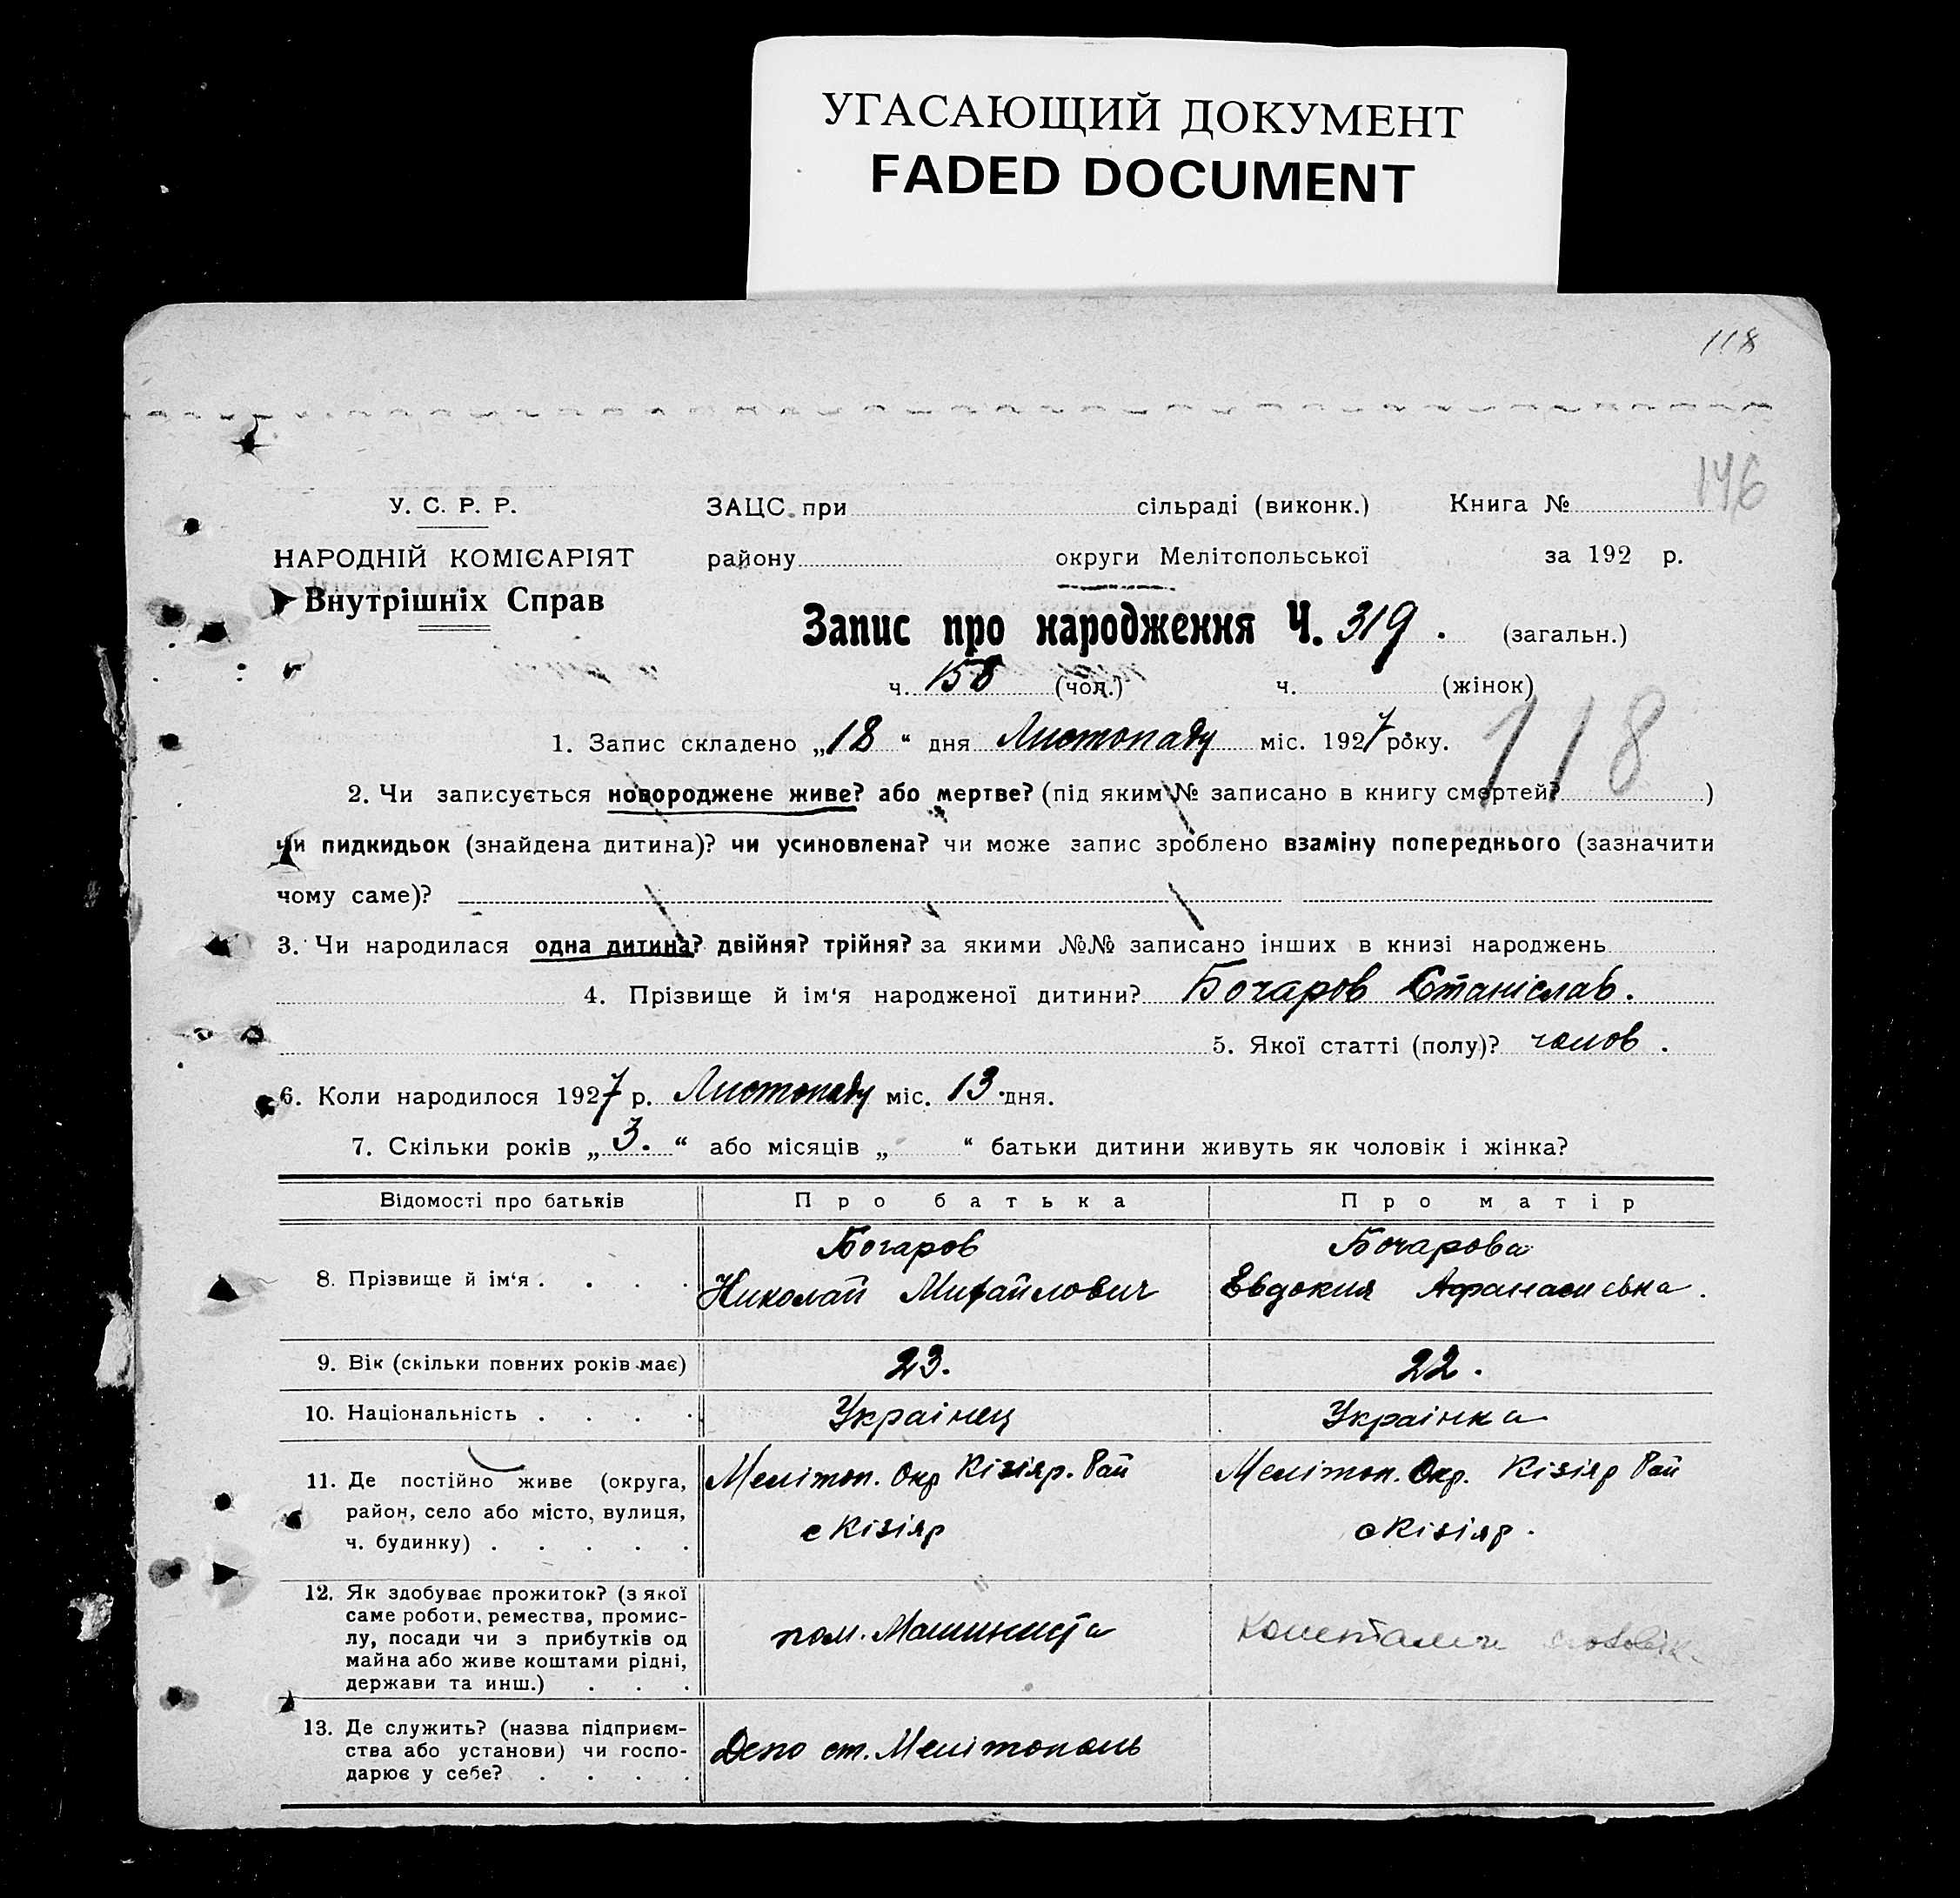 УГАСАЮЩИЙ ДОКУМЕНТ
FADED DOCUMENT
118
146
У. С. Р. Р.
ЗАЦС при сільраді (виконк.) Книга №
НАРОДНІЙ КОМІСАРІЯТ
району округи Мелітопольської за 192 р.
Внутрішніх Справ
Запис про народження Ч. 319. (загальн.)
ч. 158 (чол.) ч. (жінок)
118
1. Запис складено „18“ дня Листопаду міс. 1927 року.
2. Чи записується новороджене живе? або мертве? (під яким № записано в книгу смертей? )
чи пидкидьок (знайдена дитина)? чи усиновлена? чи може запис зроблено взаміну попереднього (зазначити
чому саме)?
3. Чи народилася одна дитина? двійня? трійня? за якими №№ записано інших в книзі народжень
4. Прізвище й ім‘я народженої дитини? Бочаров Станіслав.
5. Якої статті (полу)? чолов.
6. Коли народилося 1927 р. Листопаду міс. 13 дня.
7. Скільки років „3.“ або місяців „ “ батьки дитини живуть як чоловік і жінка?
Відомості про батьків Про батька Про матір
8. Прізвище й ім‘я . . . .
Бочаров
Николай Михайлович
Бочарова
Евдокия Афанасиевна.
9. Вік (скільки повних років має) 23. 22.
10. Національність . . . . Украінец Украінка
11. Де постійно живе (округа,
район, село або місто, вулиця,
ч. будинку) . . . . .
Мелітоп. Окр Кізіяр. Рай
с Кізіяр
Мелітоп. Окр. Кізіяр Рай
с Кізіяр.
12. Як здобуває прожиток? (з якої
саме роботи, ремества, промис-
лу, посади чи з прибутків од
майна або живе коштами рідні,
держави та инш.) . . .
пом. Машиниста
13. Де служить? (назва підприєм-
ства або установи) чи госпо-
дарює у себе? . . . .
Депо ст. Мелітополь